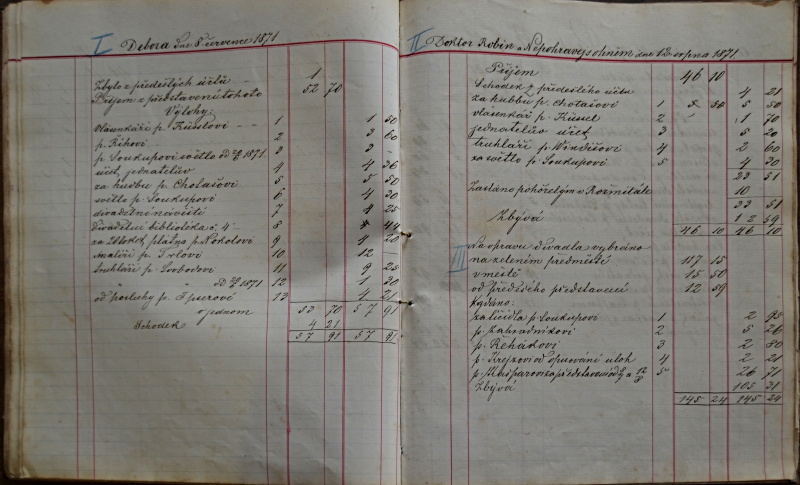 I Debora dne 8 července 1871
Zbylo z předešlých účtů – 1
Příjem z představení tohoto 52 70
Výlohy:
Vlásenkáři p. Küsslovi – – 1 1 50
p. Říhovi 2 3 60
p. Soukupovi světlo od 1871 3 3 –
účet jednatelův 4 4 36
za hudbu p. Chotašovi 5 5 50
světlo p. Soukupovi 6 4 30
divadelní návěští 7 25
Divadelní bibliotéka č. 4 8 44
za 20 loket plátna p. Nokolovi 9 20
Malíři p. Trlovi 10 12
truhláři p. Svobodovi 11 9 25
" " od 1871 12 1 30
od posluhy p. 13 4 21
v jednom 53 70 57 91
Schodek 4 21
57 91 57 91
II Doktor Robin a Nepohrávej s ohněm dne 12 srpna 1871.
Příjem 46 10
Schodek z předešlého účtu 4 21
za hudbu p. Chotašovi 1 5 50
vlásenkář p. Küssel 2 1 70
jednatelův účet 3 5 20
truhláři p. Windišovi 4 2 60
za světlo p. Soukupovi 5 4 30
23 51
Zasláno pohořelým v Rožmitále 10
33 51
Zbývá 12 59
46 10 46 10
III Na opravu divadla vybráno
na zeleném předměstí 117 15
v městě 15 50
od předešlého představení 12 59
Vydáno:
za líčidla p. Soukupovi 1 2 75
p. Zahradníkovi 2 5 26
p. Řehákovi 3 2 80
p. Krejzovi od opisování úloh 4 2 21
p. Kašparovi za představení od 5 26 71
Zbývá 105 31
145 24 145 24